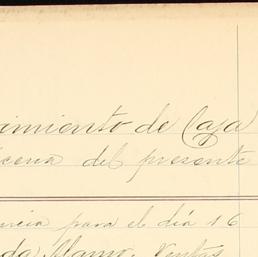 imiento de Caja
icena del presente
encia para el día 16
da Alamo, Ventas